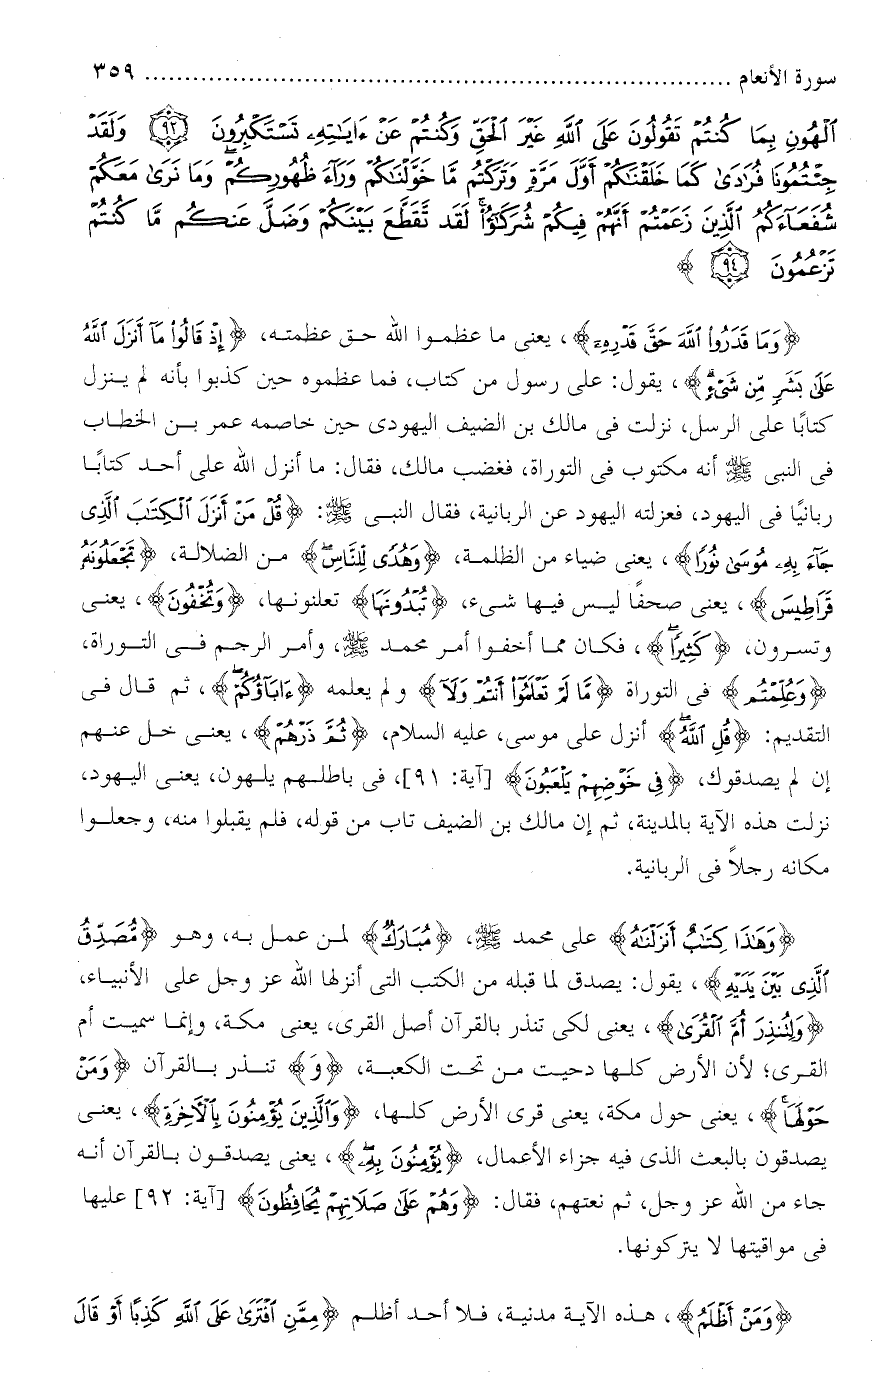 سورة الأنعام ........................................................................ ٣٥٩
ٱلْهُونِ بِمَا كُنتُمْ تَقُولُونَ عَلَى ٱللَّهِ غَيْرَ ٱلْحَقِّ وَكُنتُمْ عَنْ ءَايَٰتِهِۦ تَسْتَكْبِرُونَ ﴿٩٣﴾ وَلَقَدْ
جِئْتُمُونَا فُرَٰدَىٰ كَمَا خَلَقْنَٰكُمْ أَوَّلَ مَرَّةٍ وَتَرَكْتُم مَّا خَوَّلْنَٰكُمْ وَرَآءَ ظُهُورِكُمْ ۖ وَمَا نَرَىٰ مَعَكُمْ
شُفَعَآءَكُمُ ٱلَّذِينَ زَعَمْتُمْ أَنَّهُمْ فِيكُمْ شُرَكَٰٓؤُا۟ ۚ لَقَد تَّقَطَّعَ بَيْنَكُمْ وَضَلَّ عَنكُم مَّا كُنتُمْ
تَزْعُمُونَ ﴿٩٤﴾ ﴾
﴿وَمَا قَدَرُوا۟ ٱللَّهَ حَقَّ قَدْرِهِۦٓ﴾، يعنى ما عظموا الله حق عظمته، ﴿إِذْ قَالُوا۟ مَآ أَنزَلَ ٱللَّهُ
عَلَىٰ بَشَرٍ مِّن شَىْءٍ ۗ﴾، يقول: على رسول من كتاب، فما عظموه حين كذبوا بأنه لم ينزل
كتابًا على الرسل، نزلت فى مالك بن الضيف اليهودى حين خاصمه عمر بن الخطاب
فى النبى ﷺ أنه مكتوب فى التوراة، فغضب مالك، فقال: ما أنزل الله على أحد كتابًا
ربانيًا فى اليهود، فعزلته اليهود عن الربانية، فقال النبى ﷺ: ﴿قُلْ مَنْ أَنزَلَ ٱلْكِتَٰبَ ٱلَّذِى
جَآءَ بِهِۦ مُوسَىٰ نُورًا﴾، يعنى ضياء من الظلمة، ﴿وَهُدًى لِّلنَّاسِ ۖ﴾ من الضلالة، ﴿تَجْعَلُونَهُۥ
قَرَاطِيسَ﴾، يعنى صحفًا ليس فيها شىء، ﴿تُبْدُونَهَا﴾ تعلنونها، ﴿وَتُخْفُونَ﴾، يعنى
وتسرون، ﴿كَثِيرًا ۖ﴾، فكان مما أخفوا أمر محمد ﷺ، وأمر الرجم فى التوراة،
﴿وَعُلِّمْتُم﴾ فى التوراة ﴿مَّا لَمْ تَعْلَمُوٓا۟ أَنتُمْ وَلَآ﴾ ولم يعلمه ﴿ءَابَآؤُكُمْ ۖ﴾، ثم قال فى
التقديم: ﴿قُلِ ٱللَّهُ ۖ﴾ أنزل على موسى، عليه السلام، ﴿ثُمَّ ذَرْهُمْ﴾، يعنى خل عنهم
إن لم يصدقوك، ﴿فِى خَوْضِهِمْ يَلْعَبُونَ﴾ [آية: ٩١]، فى باطلهم يلهون، يعنى اليهود،
نزلت هذه الآية بالمدينة، ثم إن مالك بن الضيف تاب من قوله، فلم يقبلوا منه، وجعلوا
مكانه رجلاً فى الربانية.
﴿وَهَٰذَا كِتَٰبٌ أَنزَلْنَٰهُ﴾ على محمد ﷺ، ﴿مُبَارَكٌ﴾ لمن عمل به، وهو ﴿مُّصَدِّقُ
ٱلَّذِى بَيْنَ يَدَيْهِ﴾، يقول: يصدق لما قبله من الكتب التى أنزلها الله عز وجل على الأنبياء،
﴿وَلِتُنذِرَ أُمَّ ٱلْقُرَىٰ﴾، يعنى لكى تنذر بالقرآن أصل القرى، يعنى مكة، وإنما سميت أم
القرى؛ لأن الأرض كلها دحيت من تحت الكعبة، ﴿وَ﴾ تنذر بالقرآن ﴿وَمَنْ
حَوْلَهَا ۚ﴾، يعنى حول مكة، يعنى قرى الأرض كلها، ﴿وَٱلَّذِينَ يُؤْمِنُونَ بِٱلْءَاخِرَةِ﴾، يعنى
يصدقون بالبعث الذى فيه جزاء الأعمال، ﴿يُؤْمِنُونَ بِهِۦ ۖ﴾، يعنى يصدقون بالقرآن أنه
جاء من الله عز وجل، ثم نعتهم، فقال: ﴿وَهُمْ عَلَىٰ صَلَاتِهِمْ يُحَافِظُونَ﴾ [آية: ٩٢] عليها
فى مواقيتها لا يتركونها.
﴿وَمَنْ أَظْلَمُ﴾، هذه الآية مدنية، فلا أحد أظلم ﴿مِمَّنِ ٱفْتَرَىٰ عَلَى ٱللَّهِ كَذِبًا أَوْ قَالَ